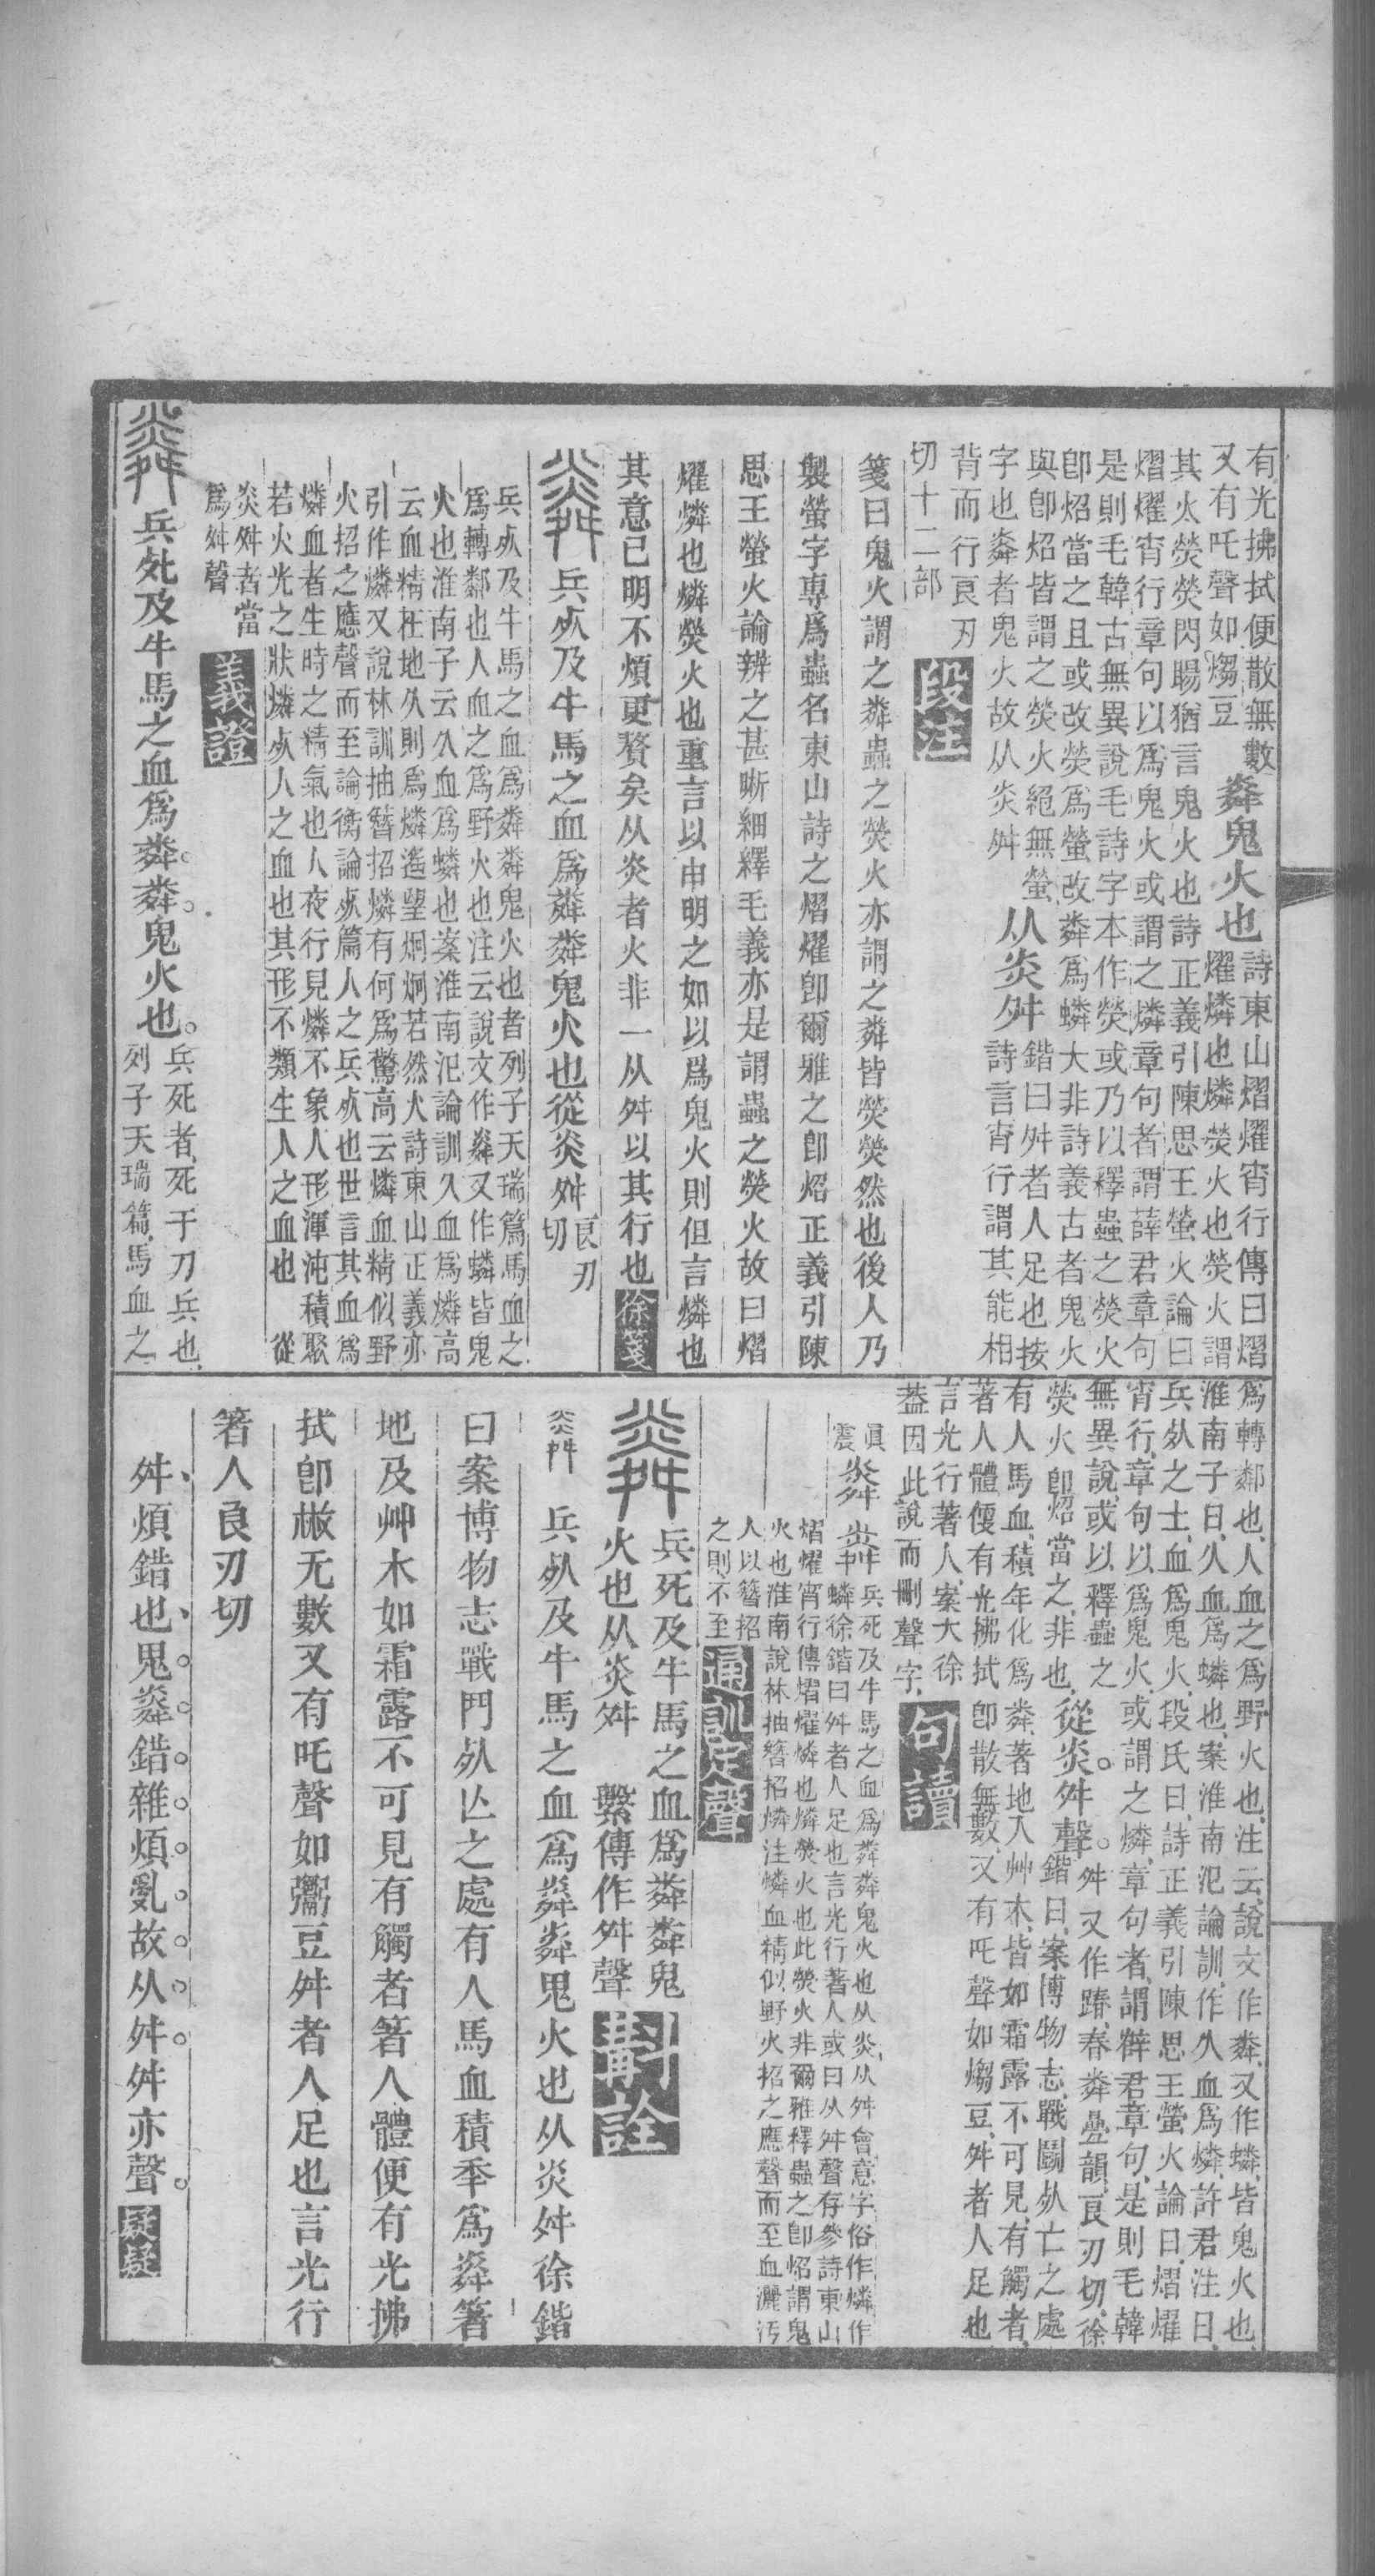 有光拂拭便散無數
又有吒聲如煼豆
粦鬼火也
詩東山熠燿宵行傳曰熠
燿燐也燐熒火也熒火謂
其火熒熒閃暘猶言鬼火也詩正義引陳思王螢火論曰
熠燿宵行章句以爲鬼火或謂之燐章句者謂薛君章句
是則毛韓古無異說毛詩字本作熒或乃以釋蟲之熒火
卽炤當之且或改熒爲螢改粦爲蟒大非詩義古者鬼火
與卽炤皆謂之熒火絕無螢
字也粦者鬼火故从炎舛
从炎舛
鍇曰舛者人足也按
詩言宵行謂其能相
背而行良刃
切十二部
段注
箋曰鬼火謂之粦蟲之熒火亦謂之粦皆熒熒然也後人乃
製螢字專爲蟲名東山詩之熠燿卽爾雅之卽炤正義引陳
思王螢火論辨之甚晰細繹毛義亦是謂蟲之熒火故曰熠
燿燐也燐熒火也重言以申明之如以爲鬼火則但言燐也
其意已明不煩更贅矣从炎者火非一从舛以其行也
徐箋
兵死及牛馬之血爲粦粦鬼火也從炎舛
良刃
切
兵死及牛馬之血爲粦粦鬼火也者列子天瑞篇馬血之
爲轉鄰也人血之爲野火也注云說文作粦又作蟒皆鬼
火也淮南子云久血爲蟒也案淮南氾論訓久血爲燐高
云血精在地久則爲燐遙望炯炯若然火詩東山正義亦
引作燐又說林訓抽簪招燐有何爲驚高云燐血精似野
火招之應聲而至論衡論死篇人之兵死也世言其血爲
燐血者生時之精氣也人夜行見燐不象人形渾沌積聚
若火光之狀燐死人之血也其形不類生人之血也 從
炎舛者當
爲舛聲
義證
兵死及牛馬之血爲粦粦鬼火也
兵死者死于刀兵也
列子天瑞篇馬血之
爲轉鄰也人血之爲野火也注云說文作粦又作蟒皆鬼火也
淮南子曰久血爲蟒也案淮南氾論訓作久血爲燐許君注曰
兵死之士血爲鬼火段氏曰詩正義引陳思王螢火論曰熠燿
宵行章句以爲鬼火或謂之燐章句者謂薛君章句是則毛韓
無異說或以釋蟲之
熒火卽炤當之非也
從炎舛聲
舛又作踳春粦疊韻良刃切徐
鍇曰案博物志戰鬬死亡之處
有人馬血積年化爲粦著地入艸木皆如霜露不可見有觸者
著人體便有光拂拭卽散無數又有吒聲如煼豆舛者人足也
言光行著人案大徐
葢因此說而刪聲字
句讀
眞
震
粦
兵死及牛馬之血爲粦粦鬼火也从炎从舛會意字俗作燐作
蟒徐鍇曰舛者人足也言光行著人或曰从舛聲存參詩東山
熠燿宵行傳熠燿燐也燐熒火也此熒火非爾雅釋蟲之卽炤謂鬼
火也淮南說林抽簪招燐注燐血精似野火招之應聲而至血灑汚
人以簪招
之則不至
通訓定聲
兵死及牛馬之血爲粦粦鬼
火也从炎舛 繫傳作舛聲
斠詮
兵死及牛馬之血爲粦粦鬼火也从炎舛徐鍇
曰案博物志戰鬥死亾之處有人馬血積秊爲粦箸
地及艸木如霜露不可見有觸者箸人體便有光拂
拭卽㪔无數又有吒聲如鬻豆舛者人足也言光行
箸人良刃切
舛煩錯也鬼粦錯雜煩亂故从舛舛亦聲
疑疑